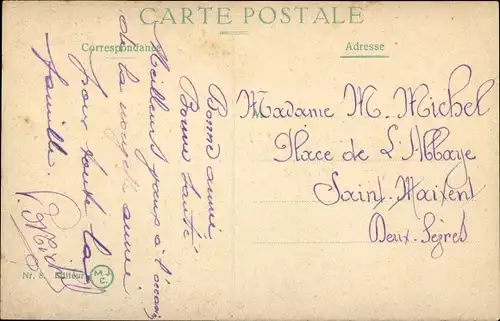 CARTE POSTALE
Correspondance
Adresse
Bonne année
Bonne Santé
Meilleurs vœux à l'occasion
de la nouvelle année
pour toute la
famille.
Madame M. Michel
Place de L'Abbaye
Saint-Maixent
Deux-Sèvres
Nr. 8. Editeur